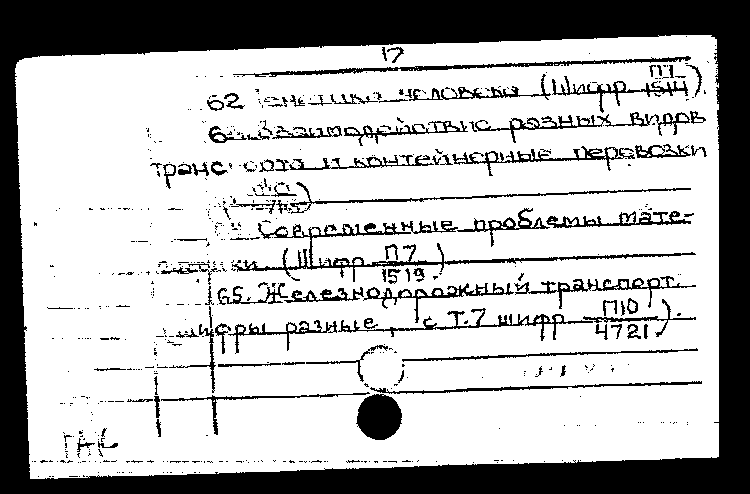 17
62 Генетика человека (Шифр П7/1514).
6 Взаимодействие разных видов
транспорта и контейнерные перевозки
Современные проблемы мате-
матики. (Шифр П7/1519.)
65. Железнодорожный транспорт.
шифры разные, с Т.7 шифр П10/4721.).